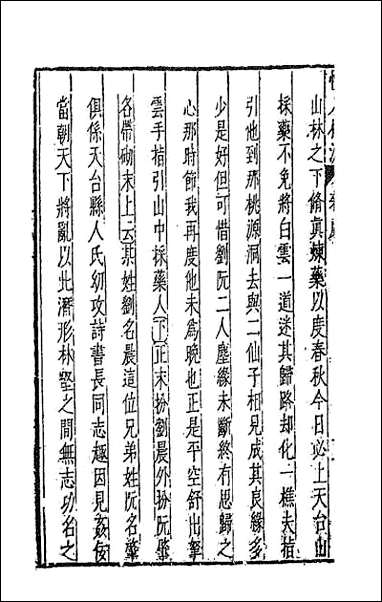 山林之下脩真煉藥以度春秋今日必上天台山
採藥不免將白雲一道迷其歸路却化一樵夫指
引他到那桃源洞去與二仙子相見成其良緣多
少是好但可惜劉阮二人塵緣未斷終有思歸之
心那時節我再度他未為晚也正是平空舒出拏
雲手指引山中採藥人下正末扮劉晨外扮阮肇
各帶砌末上云某姓劉名晨這位兄弟姓阮名肇
俱係天台縣人氏幼攻詩書長同志趣因見姦佞
當朝天下將亂以此潛形林壑之間無志功名之